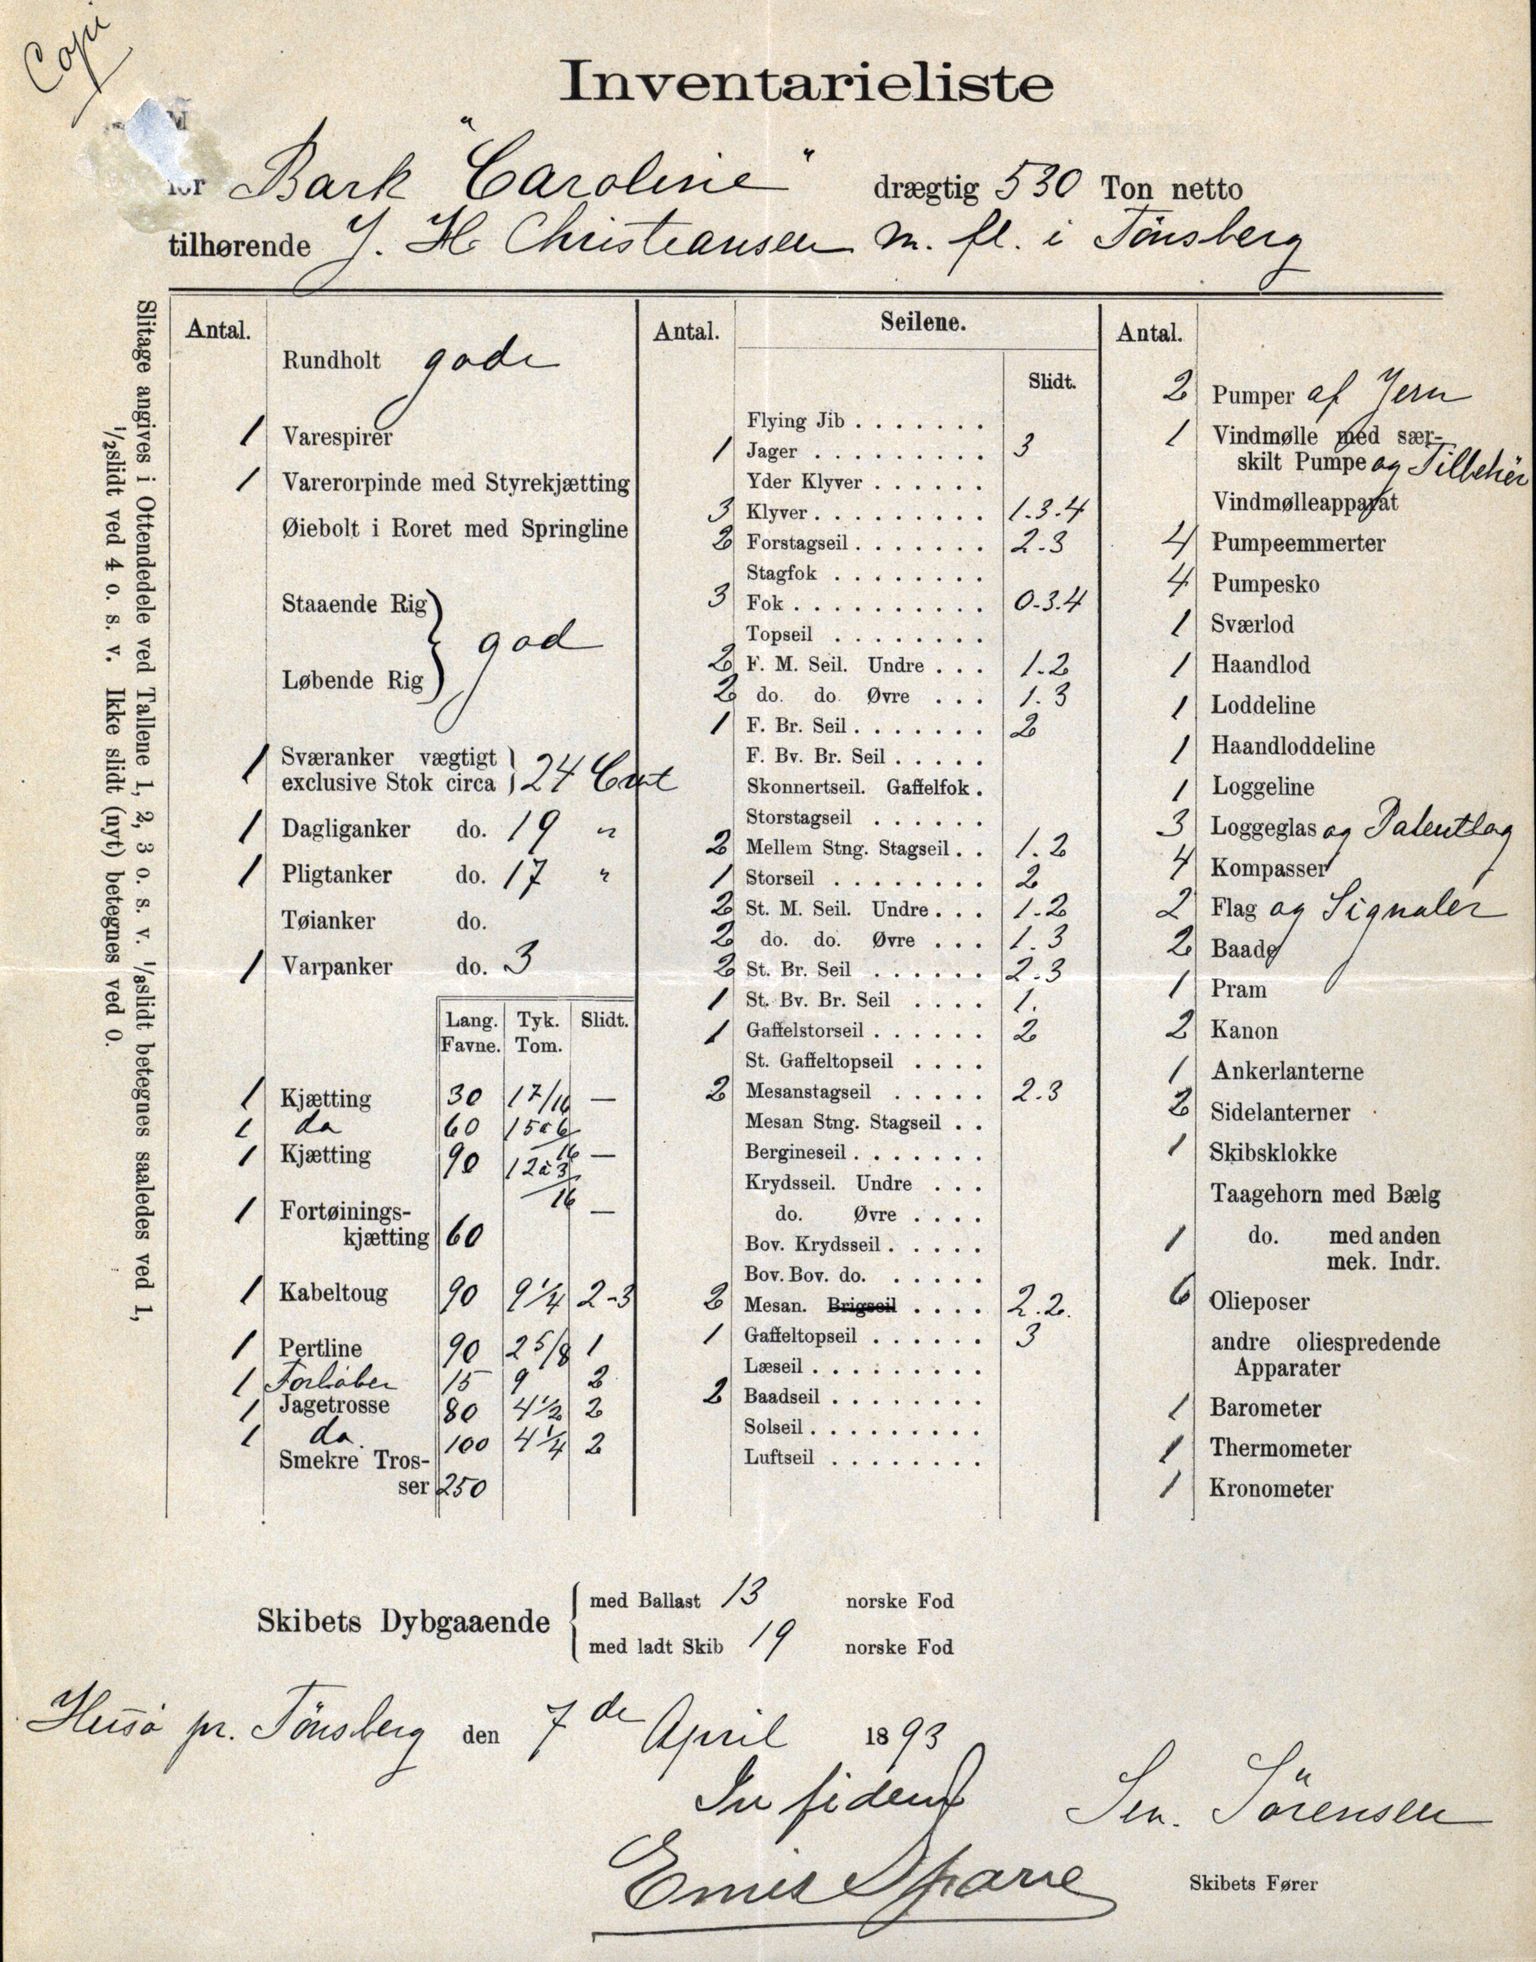 Copi
Inventarieliste
M
for Bark "Caroline" drægtig 530 Ton netto
tilhørende J. H. Christiansen m. fl. i Tönsberg
Slitage angives i Ottendedele ved Tallene 1, 2, 3 o. s. v. ⅛slidt betegnes saaledes ved 1,
½slidt ved 4 o. s. v. Ikke slidt (nyt) betegnes ved 0.
Antal.
Rundholt gode
1 Varespirer
1 Varerorpinde med Styrekjætting
Øiebolt i Roret med Springline
Staaende Rig
god
Løbende Rig
1 Sværanker vægtigt
exclusive Stok circa 24 Cwt
1 Dagliganker do. 19 "
1 Pligtanker do. 17 "
Tøianker do.
1 Varpanker do. 3
Lang. Tyk. Slidt.
Favne. Tom.
1 Kjætting 30 17/16 —
1 do 60 15 a 6/16
1 Kjætting 90 12 à 3/16 —
1 Fortøinings-
kjætting 60 —
1 Kabeltoug 90 9 1/4 2-3
1 Pertline 90 2 5/8 1
1 Forløber 15 9 2
1 Jagetrosse 80 4 1/2 2
1 do. 100 4 1/4 2
Smekre Tros-
ser 250
Antal. Seilene.
Slidt.
Flying Jib . . . . . . .
1 Jager . . . . . . . . . 3
Yder Klyver . . . . . .
3 Klyver . . . . . . . . . 1.3.4
2 Forstagseil . . . . . . . 2-3
Stagfok . . . . . . . .
3 Fok . . . . . . . . . . 0-3.4
Topseil . . . . . . . .
2 F. M. Seil. Undre . . . 1.2
2 do. do. Øvre . . . 1.3
1 F. Br. Seil . . . . . . . 2
F. Bv. Br. Seil . . . . .
Skonnertseil. Gaffelfok .
Storstagseil . . . . . .
2 Mellem Stng. Stagseil . . 1.2
1 Storseil . . . . . . . . 2
2 St. M. Seil. Undre . . . 1-2
2 do. do. Øvre . . . 1.3
2 St. Br. Seil . . . . . . 2-3
1 St. Bv. Br. Seil . . . . 1.
1 Gaffelstorseil . . . . . . 2
St. Gaffeltopseil . . . .
2 Mesanstagseil . . . . . 2.3
Mesan Stng. Stagseil . .
Bergineseil . . . . . . .
Krydsseil. Undre . . .
do. Øvre . . . .
Bov. Krydsseil . . . . .
Bov. Bov. do. . . . . .
2 Mesan. Brigseil . . . . 2.2.
1 Gaffeltopseil . . . . . . 3
Læseil . . . . . . . . .
2 Baadseil . . . . . . . .
Solseil . . . . . . . . .
Luftseil . . . . . . . .
Antal.
2 Pumper af Jern
1 Vindmølle med sær-
skilt Pumpe og Tilbehör
Vindmølleapparat
4 Pumpeemmerter
4 Pumpesko
1 Sværlod
1 Haandlod
1 Loddeline
1 Haandloddeline
1 Loggeline
3 Loggeglas og Patentlog
4 Kompasser
2 Flag og Signaler
2 Baade
1 Pram
2 Kanon
1 Ankerlanterne
2 Sidelanterner
1 Skibsklokke
Taagehorn med Bælg
1 do. med anden
mek. Indr.
6 Olieposer
andre oliespredende
Apparater
1 Barometer
1 Thermometer
1 Kronometer
Skibets Dybgaaende
med Ballast 13 norske Fod
med ladt Skib 19 norske Fod
Husö pr. Tönsberg den 7de April 1893
In fidem Sen. Sörensen
Skibets Fører